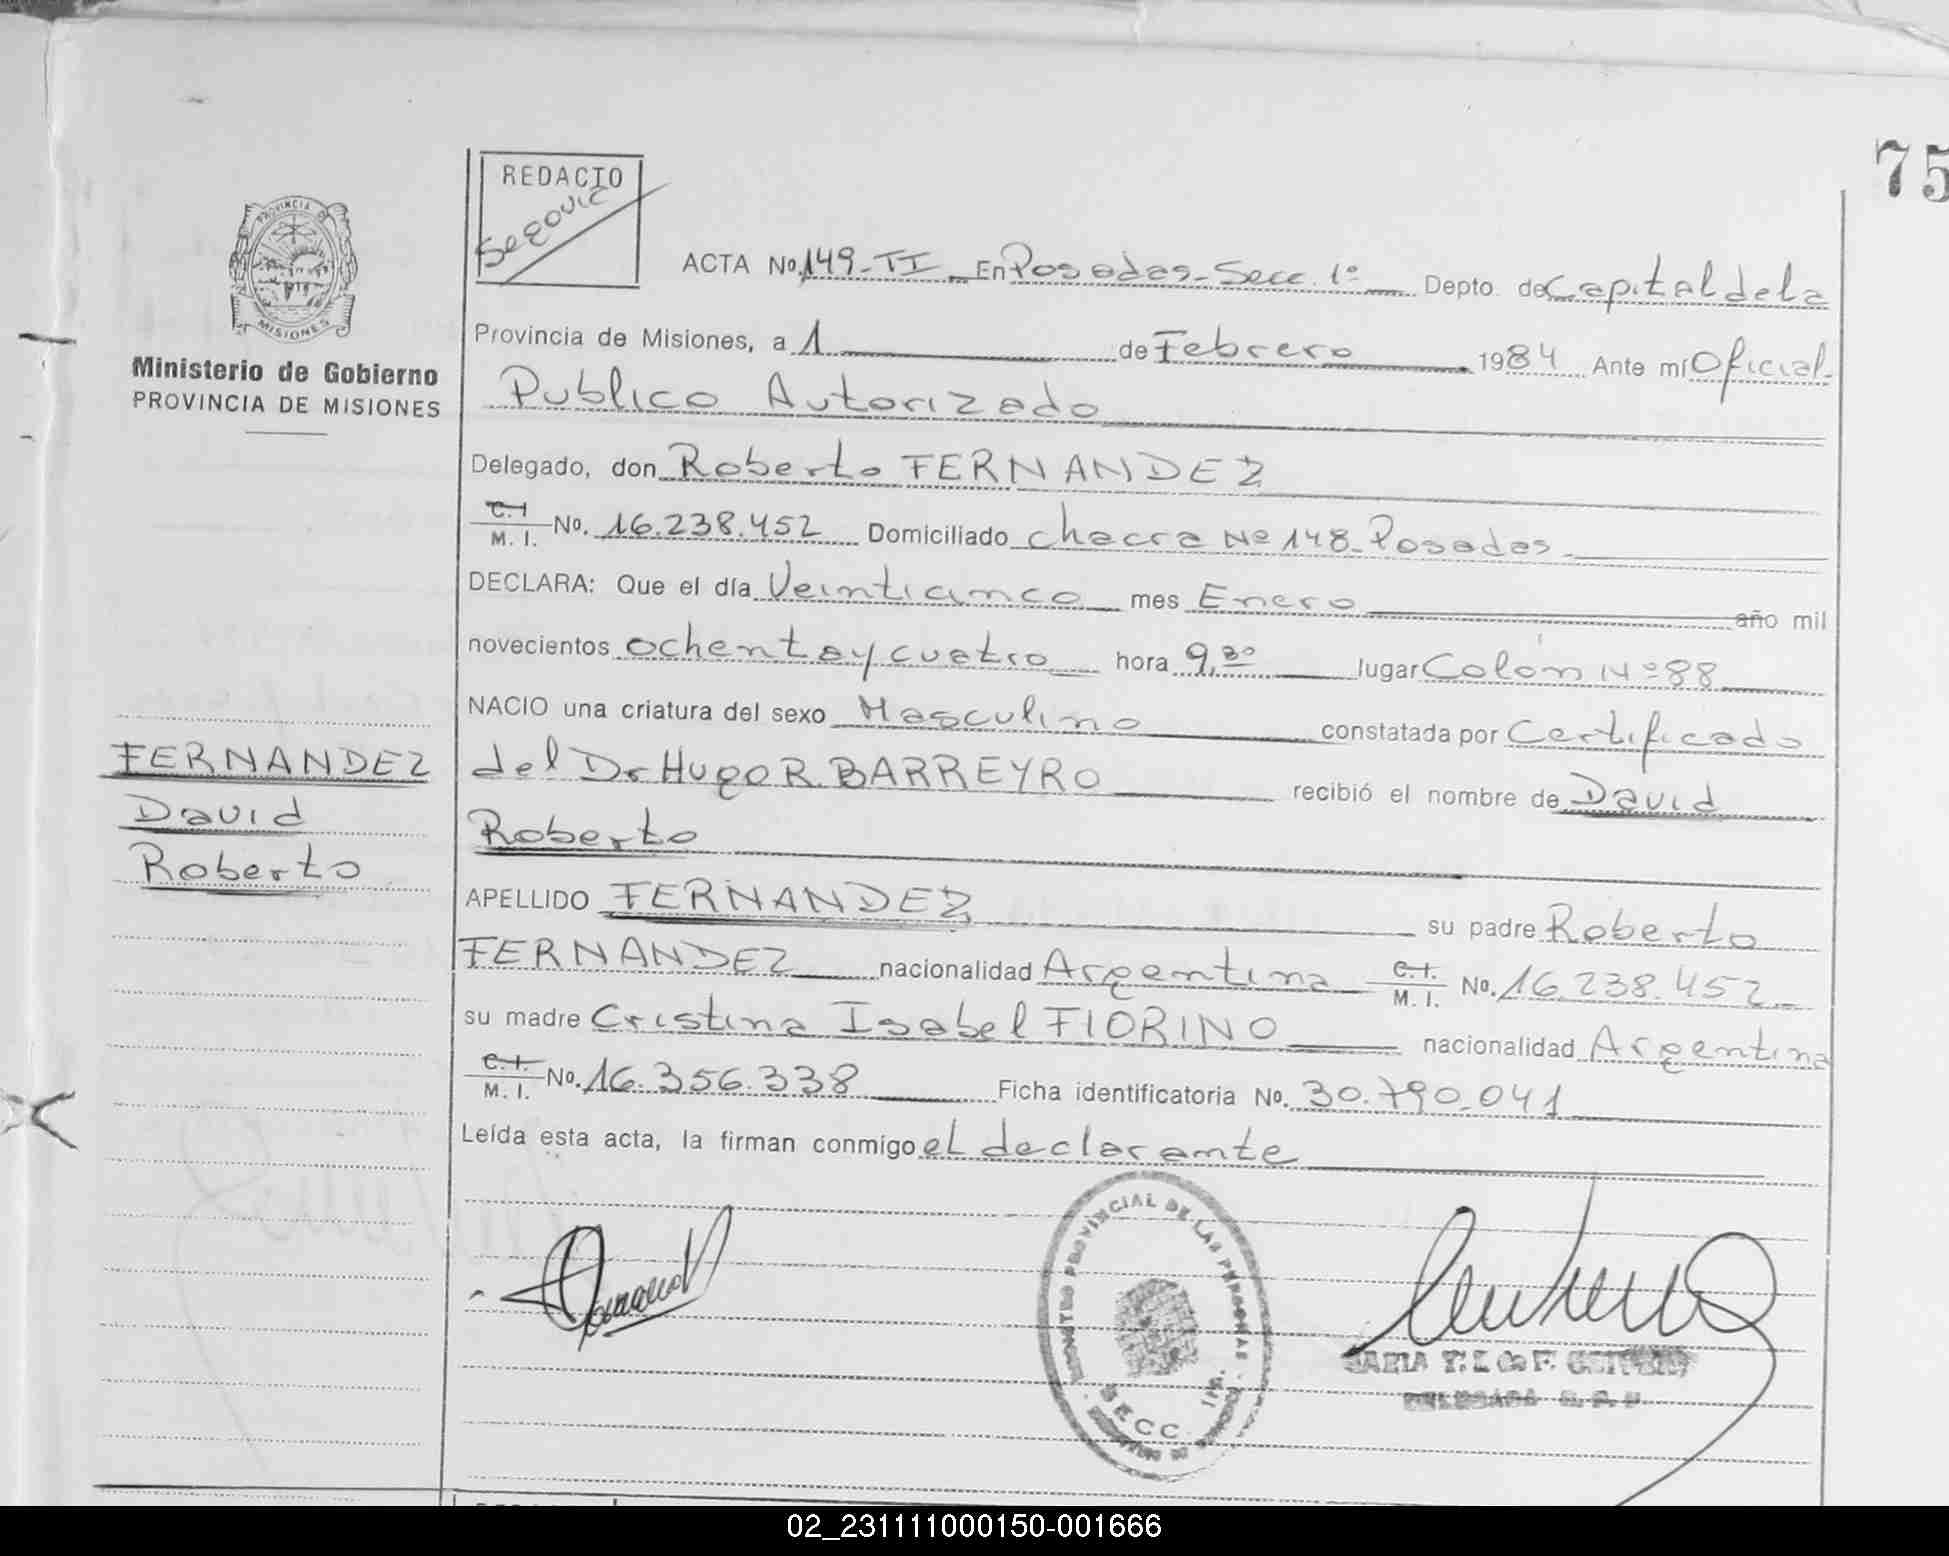 75
REDACTO
Segovic
PROVINCIA DE
MISIONES
Ministerio de Gobierno
PROVINCIA DE MISIONES
ACTA No. 149-TI En Posadas-Secc. 1º Depto. de Capital de la
Provincia de Misiones, a 1 de Febrero 1984 Ante mí Oficial
Publico Autorizado
Delegado, don Roberto FERNANDEZ
C.I. M. I. No. 16.238.452 Domiciliado Chacra Nº 148-Posadas-
DECLARA: Que el día Veinticinco mes Enero año mil
novecientos ochenta y cuatro hora 9,30 lugar Colón Nº 88
NACIO una criatura del sexo Masculino constatada por Certificado
del Dr Hugo R. BARREYRO recibió el nombre de David
Roberto
FERNANDEZ
David
Roberto
APELLIDO FERNANDEZ su padre Roberto
FERNANDEZ nacionalidad Argentina C.I. M. I. No. 16.238.452
su madre Cristina Isabel FIORINO nacionalidad Argentina
C.I. M. I. No. 16.356.338 Ficha identificatoria No. 30.790.041
Leída esta acta, la firman conmigo el declarante
PROVINCIAL DE LAS PERSONAS
SECC. 1ra.
DELEGADA
02_231111000150-001666